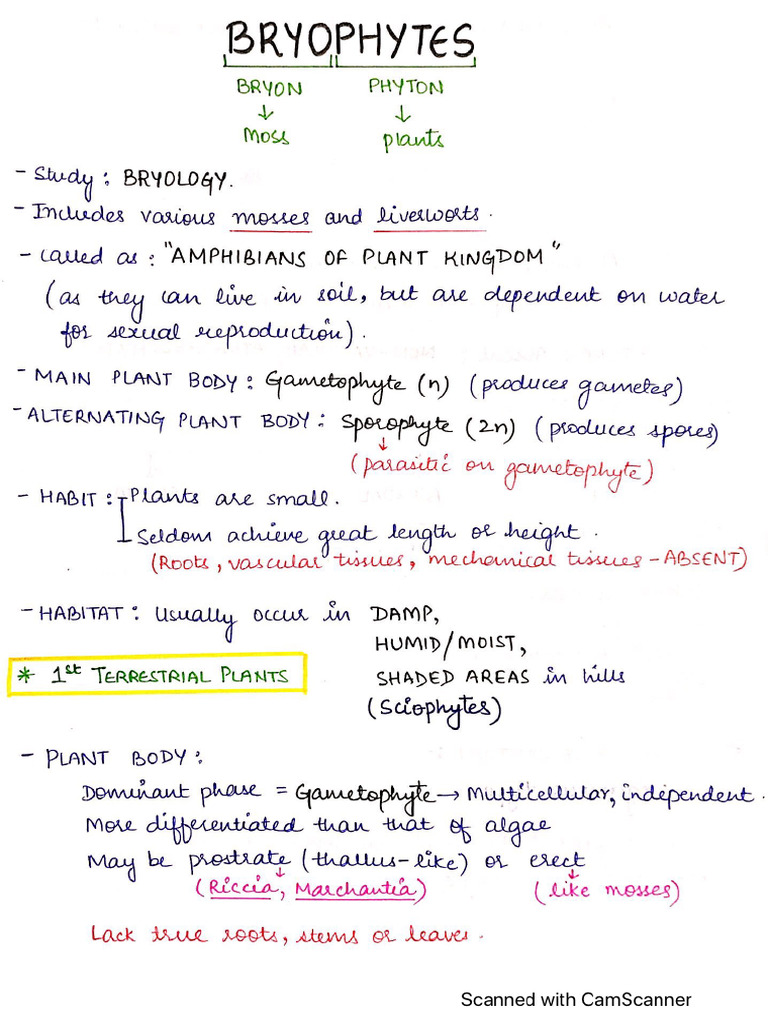 BRYOPHYTES
BRYON PHYTON
↓ ↓
Moss plants
- Study : BRYOLOGY.
- Includes various mosses and liverworts.
- called as : "AMPHIBIANS OF PLANT KINGDOM"
(as they can live in soil, but are dependent on water
for sexual reproduction).
- MAIN PLANT BODY : Gametophyte (n) (produces gametes)
- ALTERNATING PLANT BODY : Sporophyte (2n) (produces spores)
↓
(parasitic on gametophyte)
- HABIT : Plants are small.
Seldom achieve great length or height.
(Roots, vascular tissues, mechanical tissues - ABSENT)
- HABITAT : Usually occur in DAMP,
HUMID/MOIST,
* 1st TERRESTRIAL PLANTS SHADED AREAS in hills
(Sciophytes)
- PLANT BODY :
Dominant phase = Gametophyte → Multicellular, independent.
More differentiated than that of algae
May be prostrate (thallus-like) or erect
↓ ↓
(Riccia, Marchantia) (like mosses)
Lack true roots, stems or leaves.
Scanned with CamScanner